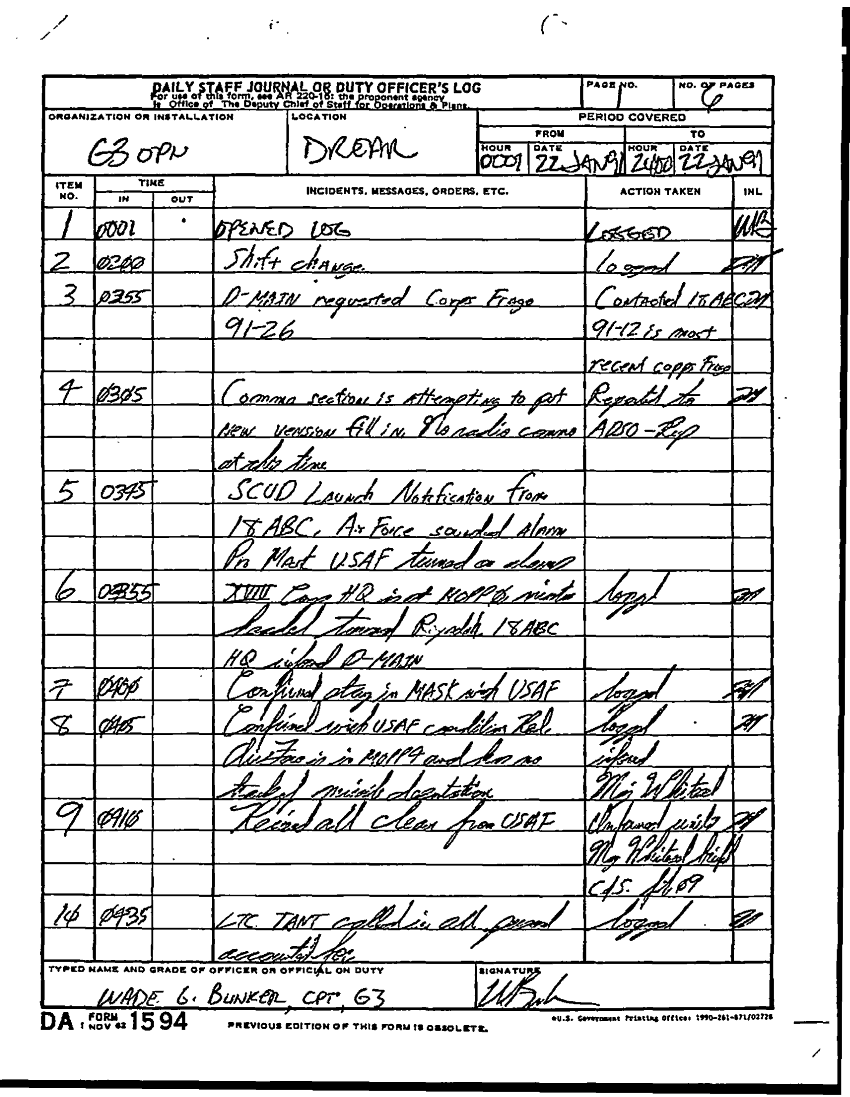 DAILY STAFF JOURNAL OR DUTY OFFICER'S LOG
For use of this form, see AR 220-15; the proponent agency
is Office of The Deputy Chief of Staff for Operations & Plans.
PAGE NO.
1
NO. OF PAGES
6
ORGANIZATION OR INSTALLATION
G3 OPN
LOCATION
DREAR
PERIOD COVERED
FROM
TO
HOUR
0001
DATE
22 JAN 91
HOUR
2400
DATE
22 JAN 91
ITEM NO.
TIME
IN
OUT
INCIDENTS, MESSAGES, ORDERS, ETC.
ACTION TAKEN
INL
1 0001 OPENED LOG LOGGED WB
2 0200 Shift change. logged
3 0255 D-MAIN requested Corps Frago Contacted 18 ABC
91-26 91-12 is most
recent corps Frago
4 0305 Commo section is attempting to put Reported to
new version fill in. No radio commo ADSO-Rep
at this time
5 0345 SCUD Launch Notification from
18 ABC, Air Force sounded Alarm
Pro Mast USAF turned on alarms
6 0355 XVIII Corps HQ is at MOPP 0, missile logged
headed toward Riyadah. 18 ABC
HQ inford D-MAIN
7 0400 Confirmed stay in MASK with USAF logged
8 0405 Confirmed with USAF condition Red. logged
Air Force is in MOPP4 and has no inford
track of missile Maj Whitead
9 0410 Recived all clear from USAF Informed units
Maj Whitead brief
C/S.
10 0435 LTC. TANT called in all personal logged
accounted for
TYPED NAME AND GRADE OF OFFICER OR OFFICIAL ON DUTY
WADE G. BUNKER, CPT, G3
SIGNATURE
DA FORM 1 NOV 62 1594
PREVIOUS EDITION OF THIS FORM IS OBSOLETE.
*U.S. Government Printing Office: 1990-261-871/02726